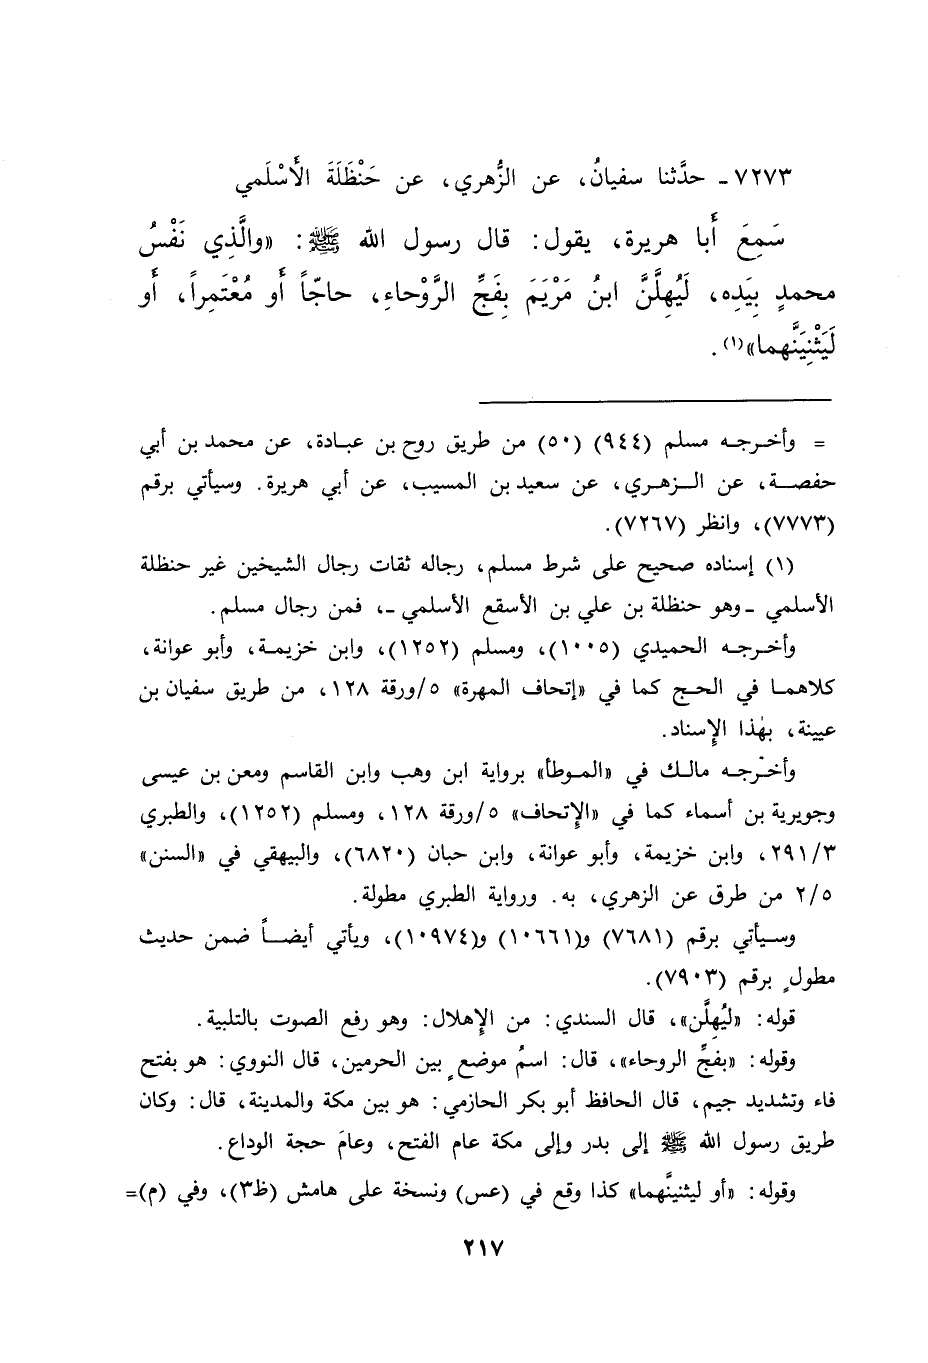 ٧٢٧٣ـ حدَّثنا سفيانُ، عن الزُّهري، عن حَنْظَلَةَ الأَسْلَمي
سَمِعَ أَبا هريرة، يقول: قال رسول الله ﷺ: «والَّذِي نَفْسُ
محمدٍ بِيَدِه، لَيُهِلَّنَّ ابنُ مَرْيَمَ بِفَجِّ الرَّوْحاءِ، حاجّاً أَو مُعْتَمِراً، أَو
لَيَثْنِيَنَّهما»(١).
= وأخرجه مسلم (٩٤٤) (٥٠) من طريق روح بن عبادة، عن محمد بن أبي
حفصة، عن الزهري، عن سعيد بن المسيب، عن أبي هريرة. وسيأتي برقم
(٧٧٧٣)، وانظر (٧٢٦٧).
(١) إسناده صحيح على شرط مسلم، رجاله ثقات رجال الشيخين غير حنظلة
الأسلمي ـ وهو حنظلة بن علي بن الأسقع الأسلمي ـ، فمن رجال مسلم.
وأخرجه الحميدي (١٠٠٥)، ومسلم (١٢٥٢)، وابن خزيمة، وأبو عوانة،
كلاهما في الحج كما في «إتحاف المهرة» ٥/ورقة ١٢٨، من طريق سفيان بن
عيينة، بهٰذا الإِسناد.
وأخرجه مالك في «الموطأ» برواية ابن وهب وابن القاسم ومعن بن عيسى
وجويرية بن أسماء كما في «الإِتحاف» ٥/ورقة ١٢٨، ومسلم (١٢٥٢)، والطبري
٢٩١/٣، وابن خزيمة، وأبو عوانة، وابن حبان (٦٨٢٠)، والبيهقي في «السنن»
٢/٥ من طرق عن الزهري، به. ورواية الطبري مطولة.
وسيأتي برقم (٧٦٨١) و(١٠٦٦١) و(١٠٩٧٤)، ويأتي أيضاً ضمن حديث
مطولٍ برقم (٧٩٠٣).
قوله: «ليُهِلَّن»، قال السندي: من الإِهلال: وهو رفع الصوت بالتلبية.
وقوله: «بفجِّ الروحاء»، قال: اسمُ موضعٍ بين الحرمين، قال النووي: هو بفتح
فاء وتشديد جيم، قال الحافظ أبو بكر الحازمي: هو بين مكة والمدينة، قال: وكان
طريق رسول الله ﷺ إلى بدر وإلى مكة عام الفتح، وعامَ حجة الوداع.
وقوله: «أو ليثنينَّهما» كذا وقع في (عس) ونسخة على هامش (ظ٣)، وفي (م)=
٢١٧